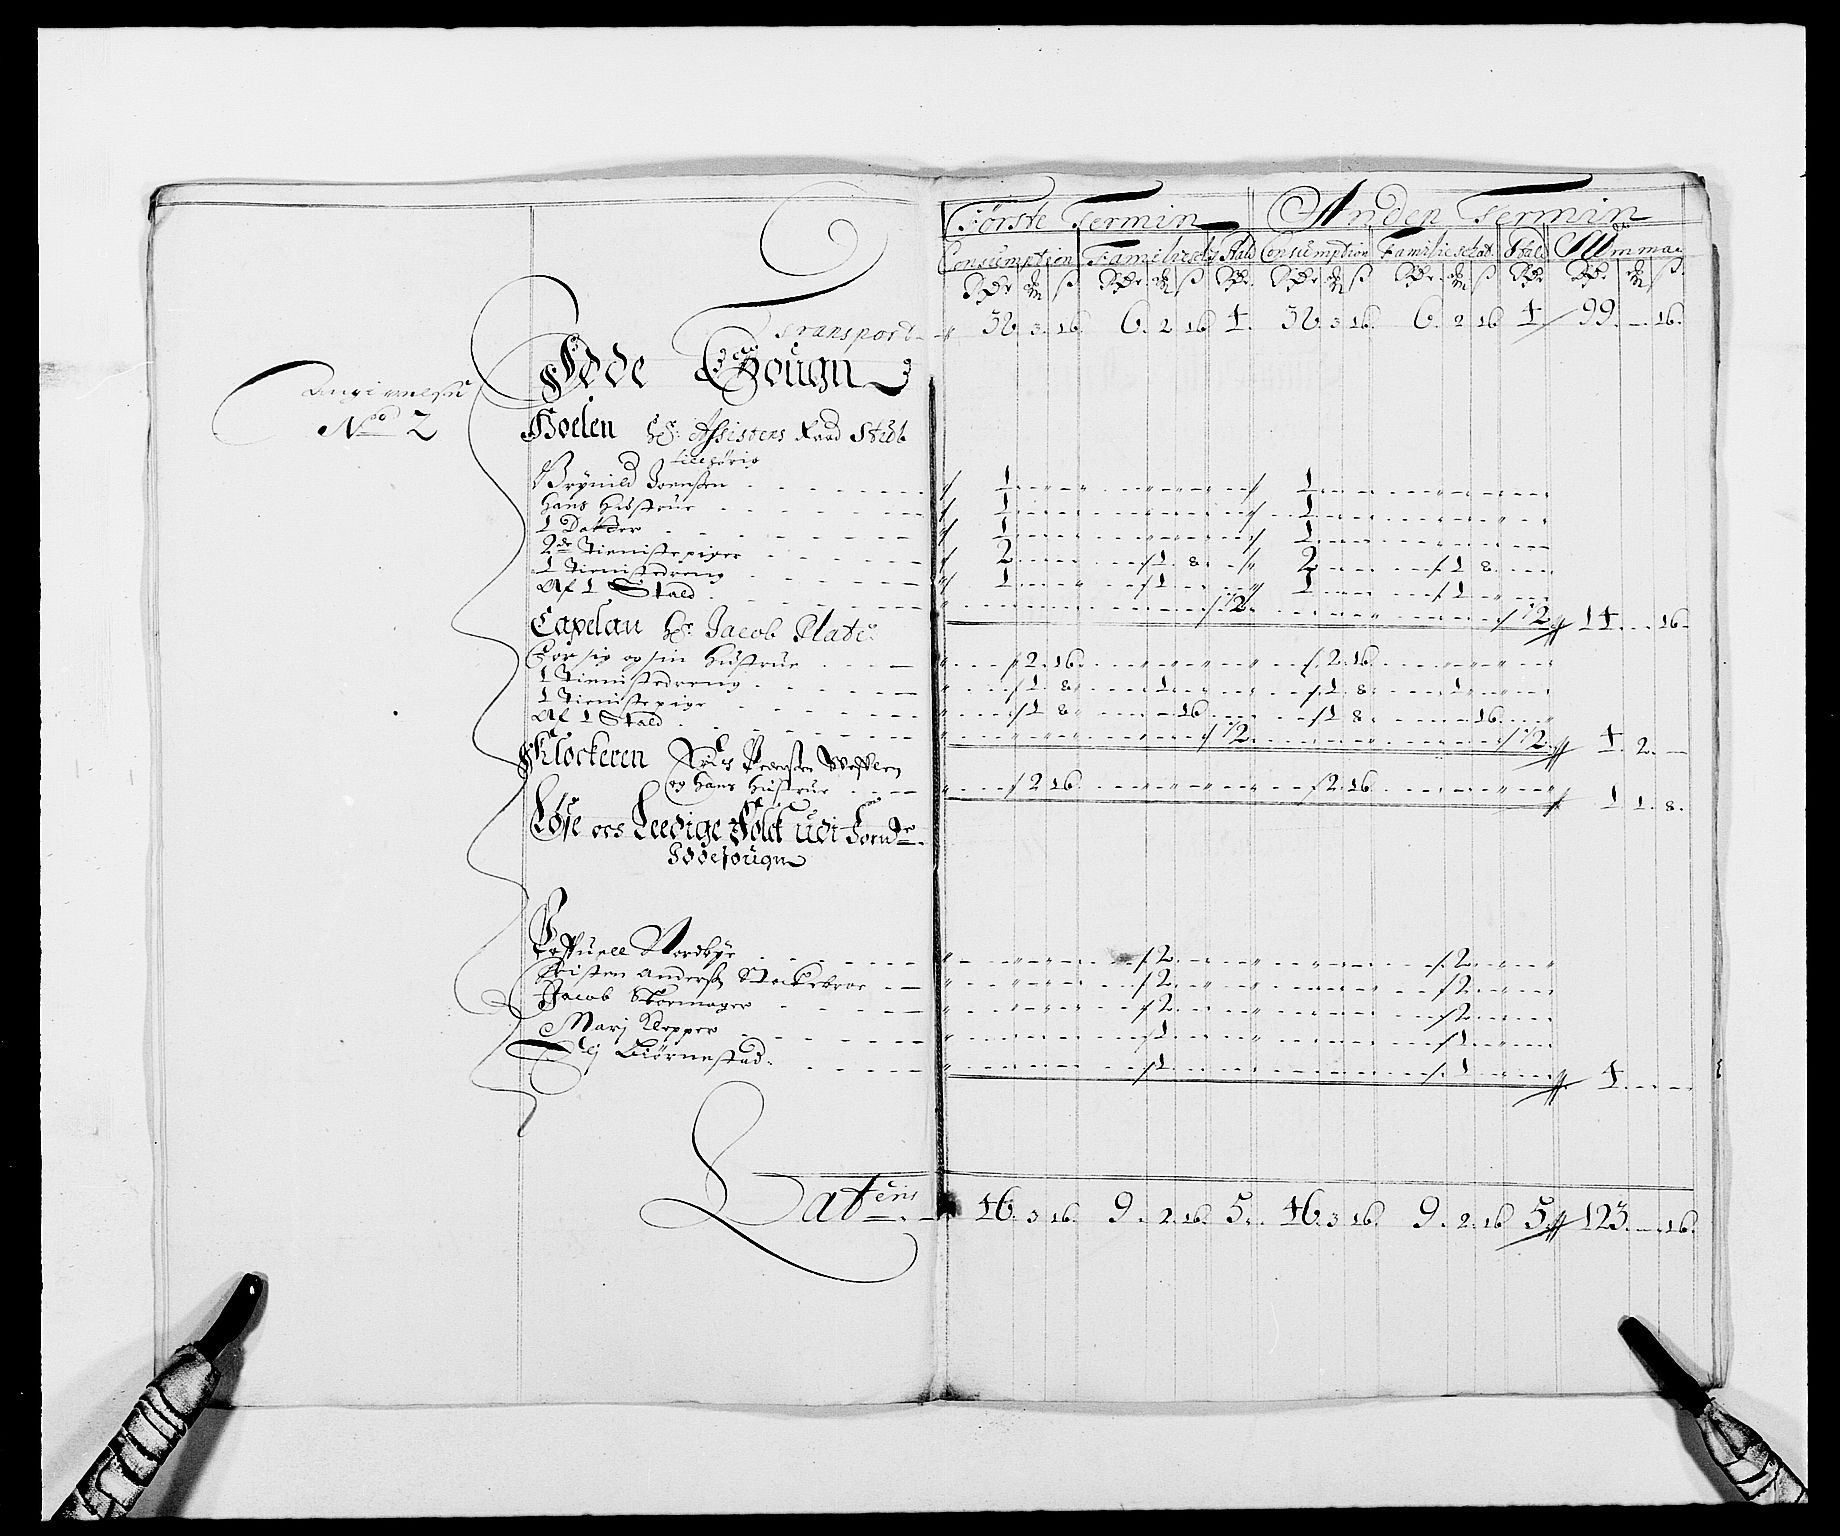 Første Termin Anden Termin
Consumption Familieskat Stald Consumption Familieskat Stald Summa
Rdr ort ß Rdr ort ß Rdr Rdr ort ß Rdr ort ß Rdr Rdr ort ß
Transport 38. 3. 16. 6. 2. 16 4. 38. 3 16. 6. 2 16 4 99. — 16.
Idde Sougn
Angivelse
No 2
Hoelen Hr: Assistens Raad Stub
tilhørig
Brynild Joensen 1 1
Hans Hustrue 1 1
1 Datter 1 1
2de Tienistepiger 2 1 8 2 1 8
1 Tienistedreng 1 1 1 1
Af 1 Stald 1/2 1/2 14 16
Capelan Hr: Jacob Plate
For sig og sin Hustrue 2 16 2 16
1 Tienistedreng 1 8 1 1 8 1
1 Tienistepige 1 8 16 1 8 16
Af 1 Stald 1/2 1/2 4. 2. —
Klockeren Pedersen
og Hans Hustrue 2 16 2 16 1 1. 8.
Løse och Leedige Folck Udi
Iddesougn
Nordbye 2 2
Cristen Andersen 2 2
Jacob Skomager 2 2
Marj Klepper 1 1
Biørnestad 1 1 4
Lateris 46. 3 16. 9. 2. 16. 5. 46. 3 16. 9. 2. 16 5 123. — 16.